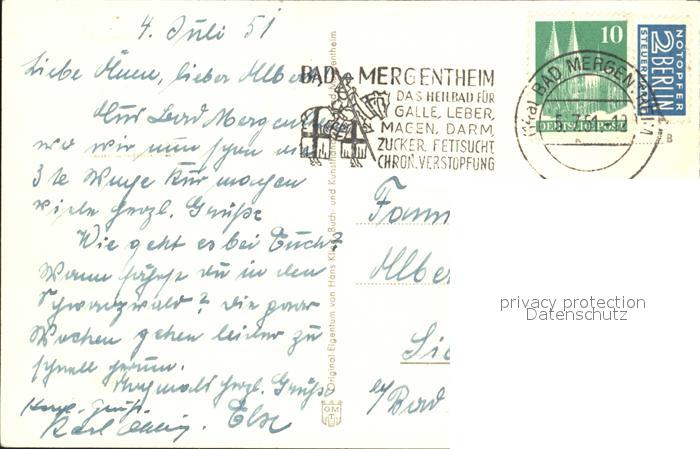 4. Juli 51
Liebe Änne, lieber Albert
Aus Bad Mergentheim
wo wir nun schon die
3te Woche Kur machen
viele herzl. Grüße
Wie geht es bei Euch?
Wann fährst du in den
Schwarzwald? die paar
Wochen gehen leider zu
schnell herum.
Nochmals herzl. Grüße
Else
Herzl. Grüße.
Karl
BAD MERGENTHEIM
DAS HEILBAD FÜR
GALLE, LEBER,
MAGEN, DARM,
ZUCKER, FETTSUCHT
CHRON. VERSTOPFUNG
10
DEUTSCHE POST
NOTOPFER
2 BERLIN
STEUERMARKE
BAD MERGENTHEIM
5.7.51
B
Original-Eigentum von Hans Kling, Buch- und Kunsthandlung, Bad Mergentheim
Albe
Bad
privacy protection
Datenschutz